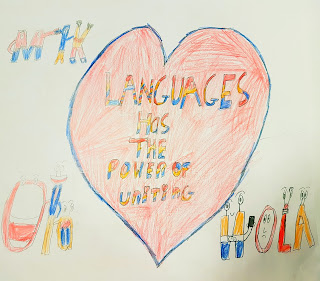 LANGUAGES
HAS
THE
POWER OF
UNITING
HOLA